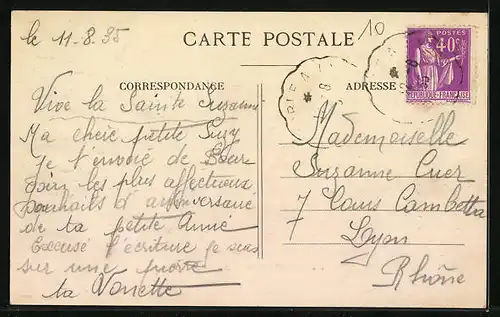 le 11-8.35
10
CARTE POSTALE
POSTES
40c
REPUBLIQUE FRANÇAISE
CORRESPONDANCE
ADRESSE
Vive la Sainte Suzanne
Ma chère petite Suzy
Je t'envoie de
les plus affectueux
souhaits d'anniversaire
de ta petite Amie
Excuse l'écriture je suis
sur une
ta Nonette
Mademoiselle
Suzanne Cuer
7 Cours Gambetta
Lyon
Rhône